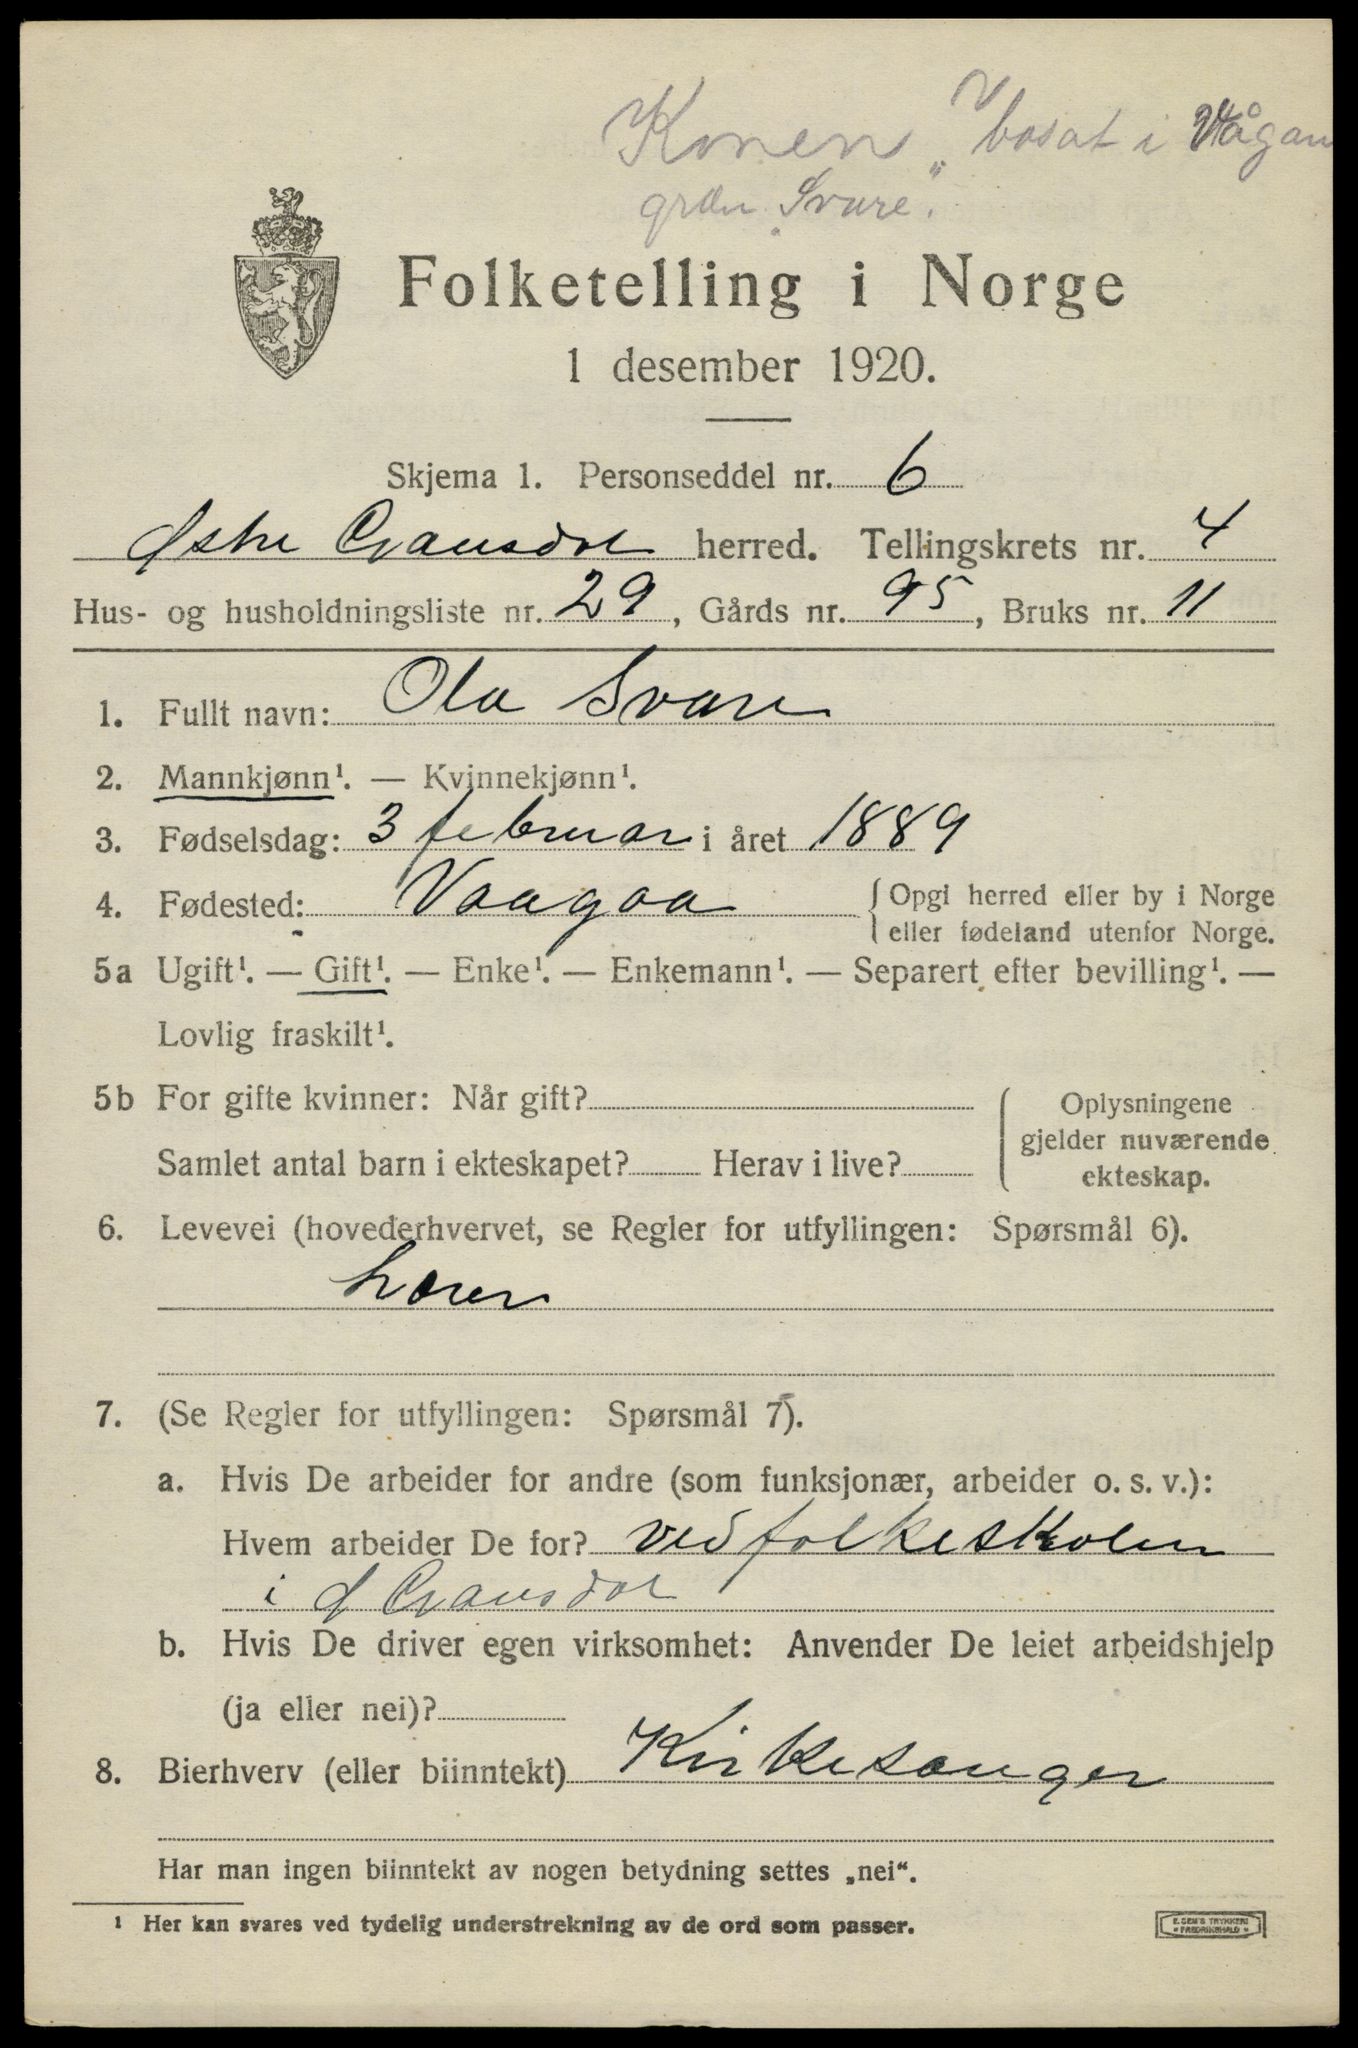 Konen bosat i Vågan
grdn „Svare“.
Folketelling i Norge
1 desember 1920.
Skjema 1. Personseddel nr. 6
Østre Gausdal herred. Tellingskrets nr. 4
Hus- og husholdningsliste nr. 29, Gårds nr. 95, Bruks nr. 11
1. Fullt navn: Ola Svare
2. Mannkjønn¹. — Kvinnekjønn¹.
3. Fødselsdag: 3 februar i året 1889
4. Fødested: Vaagaa
Opgi herred eller by i Norge
eller fødeland utenfor Norge.
5a Ugift¹. — Gift¹. — Enke¹. — Enkemann¹. — Separert efter bevilling¹. —
Lovlig fraskilt¹.
5b For gifte kvinner: Når gift?
Samlet antal barn i ekteskapet? Herav i live?
Oplysningene
gjelder nuværende
ekteskap.
6. Levevei (hovederhvervet, se Regler for utfyllingen: Spørsmål 6).
Lærer
7. (Se Regler for utfyllingen: Spørsmål 7).
a. Hvis De arbeider for andre (som funksjonær, arbeider o. s. v.):
Hvem arbeider De for? ved folkeskolen
i Ø Gausdal
b. Hvis De driver egen virksomhet: Anvender De leiet arbeidshjelp
(ja eller nei)?
8. Bierhverv (eller biinntekt) Kirkesanger
Har man ingen biinntekt av nogen betydning settes „nei“.
¹ Her kan svares ved tydelig understrekning av de ord som passer.
E. SEM'S TRYKKERI
FREDRIKSHALD